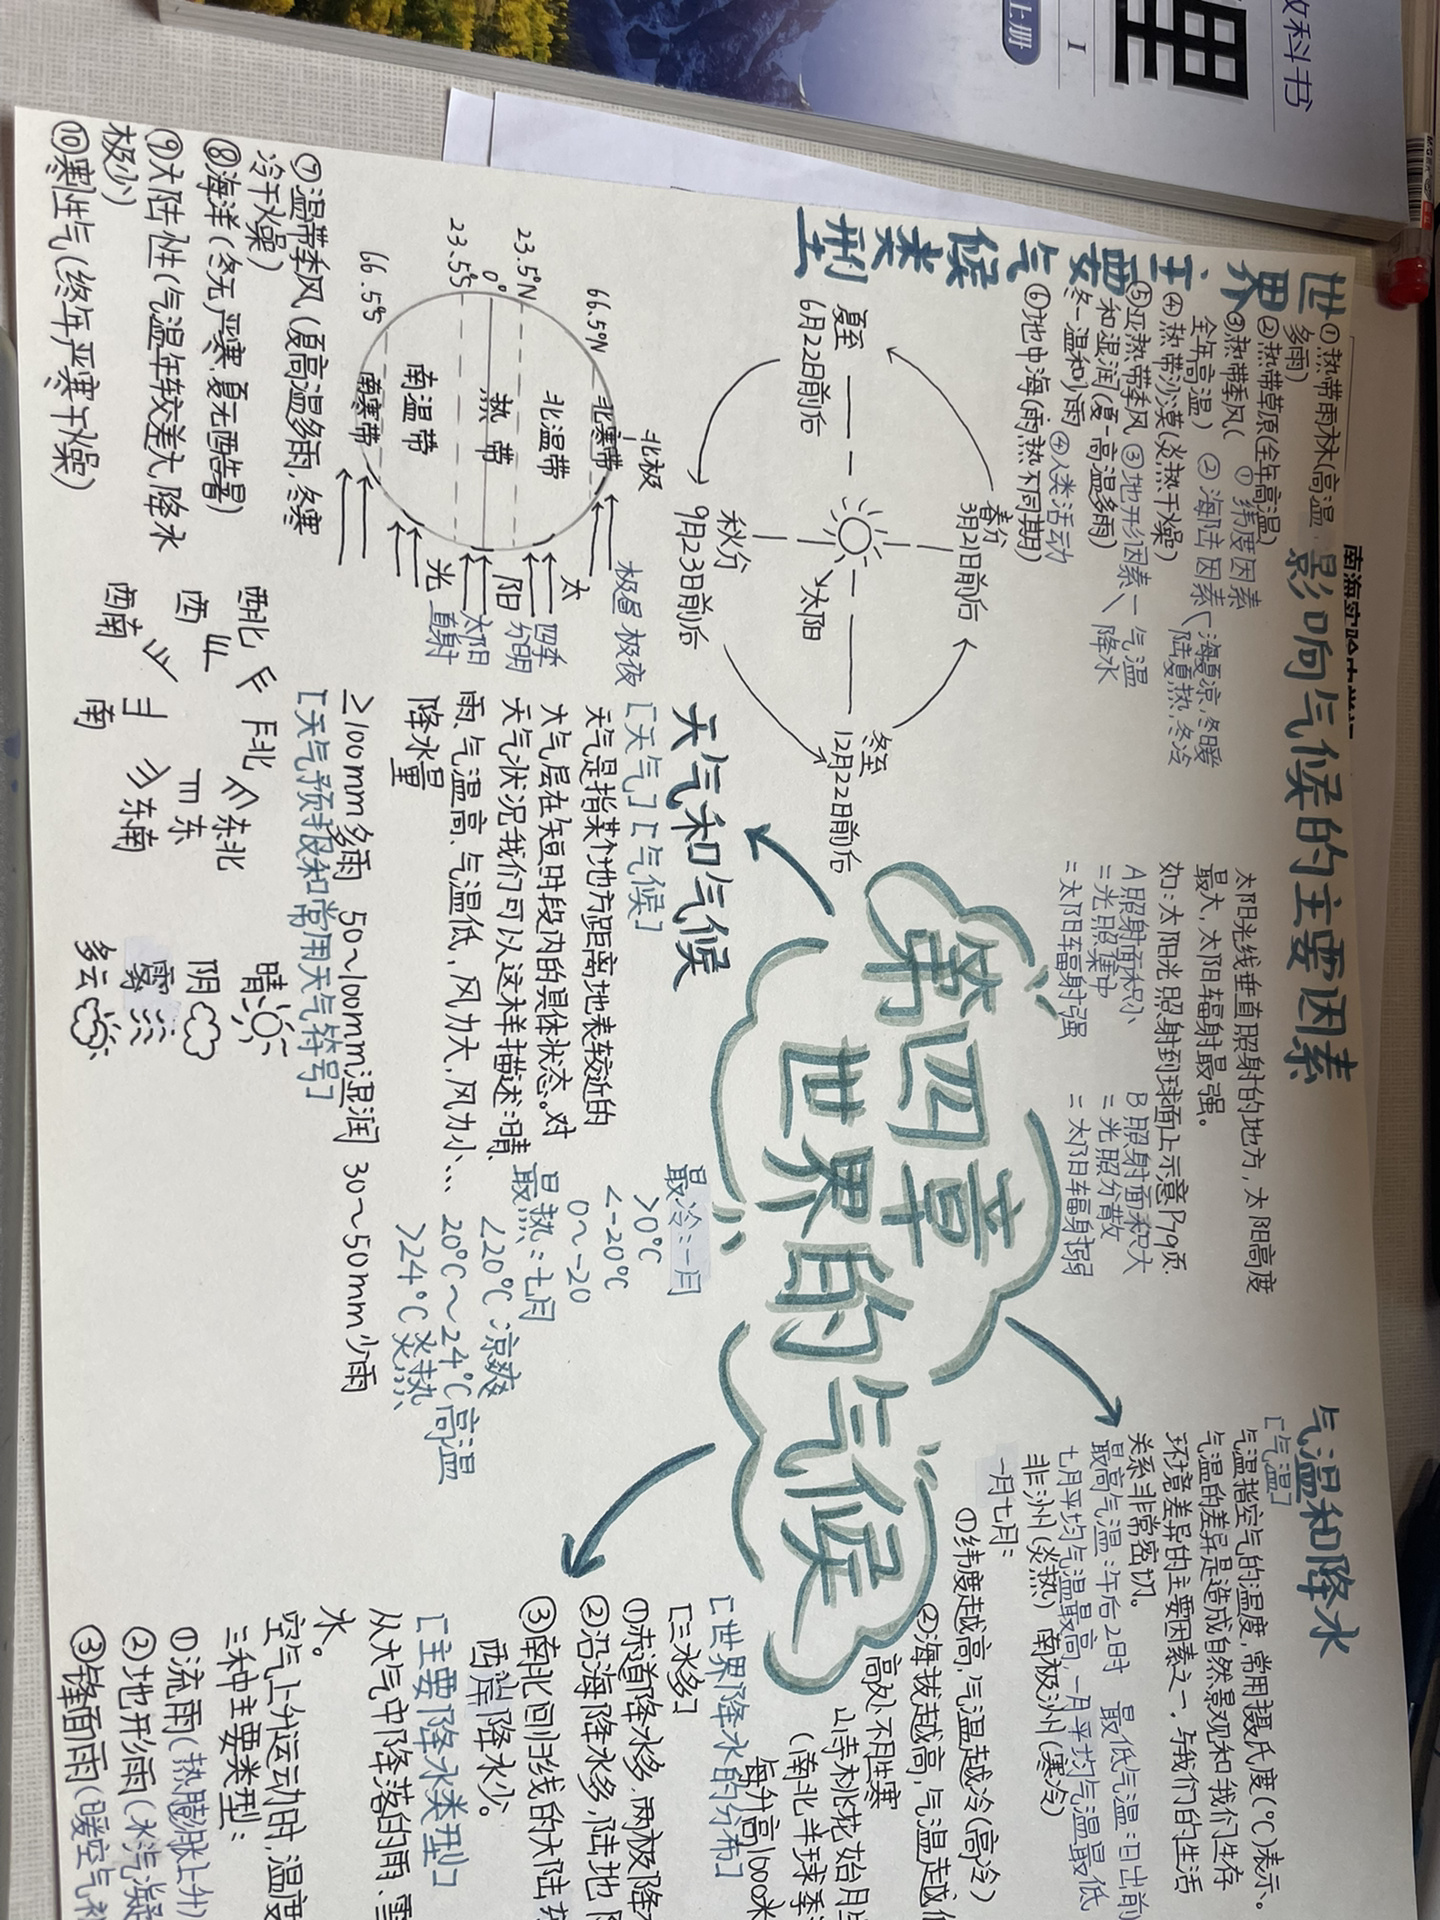 教科书
理
I
上册
世界主要气候类型
①热带雨林(高温
多雨)
②热带草原(全年高温)
③热带季风(
全年高温)
④热带沙漠(炎热干燥)
⑤亚热带季风
和湿润(夏-高温多雨)
冬-温和少雨
⑥地中海(雨热不同期)
影响气候的主要因素
①纬度因素
②海陆因素
海夏凉,冬暖
陆夏热,冬冷
③地形因素
气温
降水
④人类活动
太阳光线垂直照射的地方,太阳高度
最大,太阳辐射最强。
如:太阳光照射到球面上示意P79页.
A照射面积小
=光照集中
=太阳辐射强
B照射面积大
=光照分散
=太阳辐射弱
春分
3月21日前后
夏至
6月22日前后
太阳
冬至
12月22日前后
秋分
9月23日前后
北极
66.5°N
23.5°N
0°
23.5°S
66.5°S
北寒带
北温带
热带
南温带
南寒带
太
阳
光
极昼极夜
四季
分明
太阳
直射
⑦温带季风(夏高温多雨,冬寒
冷干燥)
⑧海洋(冬无严寒.夏无酷暑)
⑨大陆性(气温年较差大,降水
极少)
⑩寒性气(终年严寒干燥)
第四章
世界的气候
天气和气候
[天气][气候]
天气是指某个地方距离地表较近的
大气层在短时段内的具体状态。对
天气状况我们可以这样描述:晴、
雨、气温高、气温低,风力大,风力小…
降水量
≥100mm多雨 50~100mm湿润 30~50mm少雨
[天气预报和常用天气符号]
西北
北
东北
西
东
西南
南
东南
晴
阴
雾
多云
最冷:一月
>0℃
<-20℃
0~-20
最热:七月
<20℃凉爽
20℃~24℃高温
>24℃炎热
气温和降水
[气温]
气温指空气的温度,常用摄氏度(℃)表示。
气温的差异是造成自然景观和我们生存
环境差异的主要因素之一,与我们的生活
关系非常密切。
最高气温:午后2时 最低气温:日出前
七月平均气温最高,一月平均气温最低
非洲(炎热) 南极洲(寒冷)
一月七月:
①纬度越高,气温越冷(高冷)
②海拔越高,气温越
高处不胜寒
山寺桃花始
(南北半球季
每升高1000米
[世界降水的分布]
[三水多]
①赤道降水多,两极降
②沿海降水多,陆地
③南北回归线的大陆
西岸降水少。
[主要降水类型]
从大气中降落的雨、雪
水。
空气上升运动时,温度
三种主要类型:
①流雨(热膨胀上升)
②地形雨(水汽凝
③锋面雨(暖空气